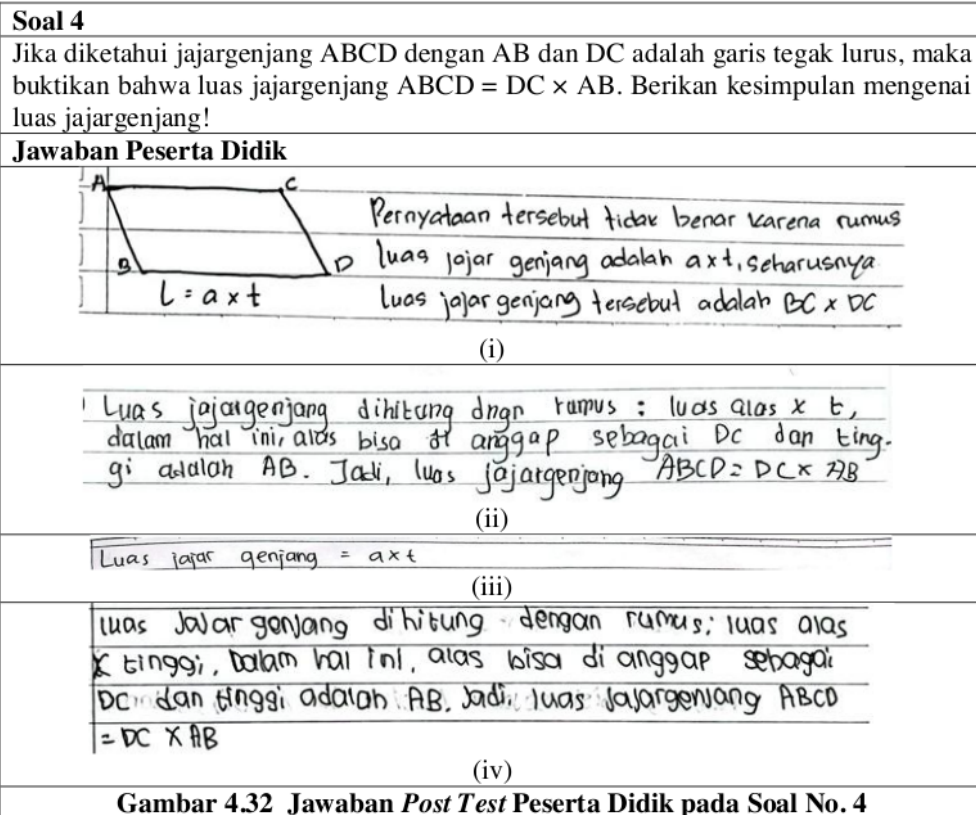 Soal 4
Jika diketahui jajargenjang ABCD dengan AB dan DC adalah garis tegak lurus, maka
buktikan bahwa luas jajargenjang ABCD = DC × AB. Berikan kesimpulan mengenai
luas jajargenjang!
Jawaban Peserta Didik
A
C
B
D
L = a x t
Pernyataan tersebut tidak benar karena rumus
luas jajar genjang adalah a x t, seharusnya
luas jajar genjang tersebut adalah BC x DC
(i)
Luas jajargenjang dihitung dngn rumus : luas alas x t,
dalam hal ini, alas bisa di anggap sebagai DC dan ting-
gi adalah AB. Jadi, luas jajargenjang ABCD = DC x AB
(ii)
Luas jajar genjang = a x t
(iii)
luas Jajar genjang dihitung dengan rumus; luas alas
x tinggi, Dalam hal ini, alas bisa di anggap sebagai
DC dan tinggi adalah AB. Jadi, luas jajargenjang ABCD
= DC X AB
(iv)
Gambar 4.32 Jawaban Post Test Peserta Didik pada Soal No. 4